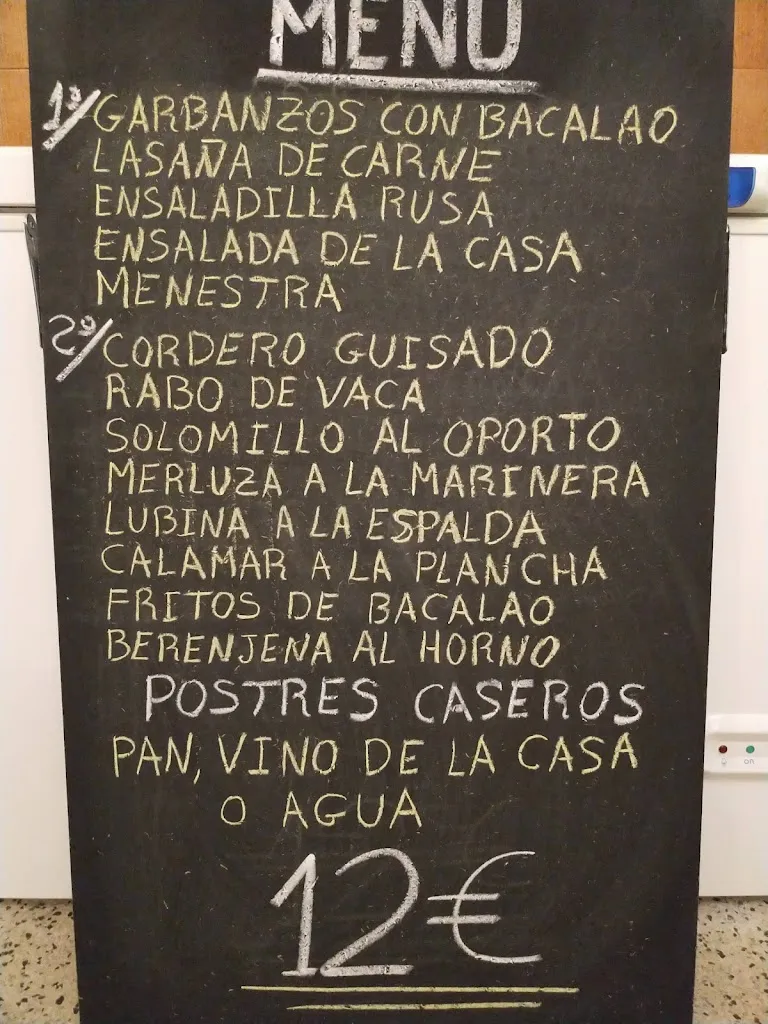 MENÚ
1º/ GARBANZOS CON BACALAO
LASAÑA DE CARNE
ENSALADILLA RUSA
ENSALADA DE LA CASA
MENESTRA
2º/ CORDERO GUISADO
RABO DE VACA
SOLOMILLO AL OPORTO
MERLUZA A LA MARINERA
LUBINA A LA ESPALDA
CALAMAR A LA PLANCHA
FRITOS DE BACALAO
BERENJENA AL HORNO
POSTRES CASEROS
PAN, VINO DE LA CASA
O AGUA
12€